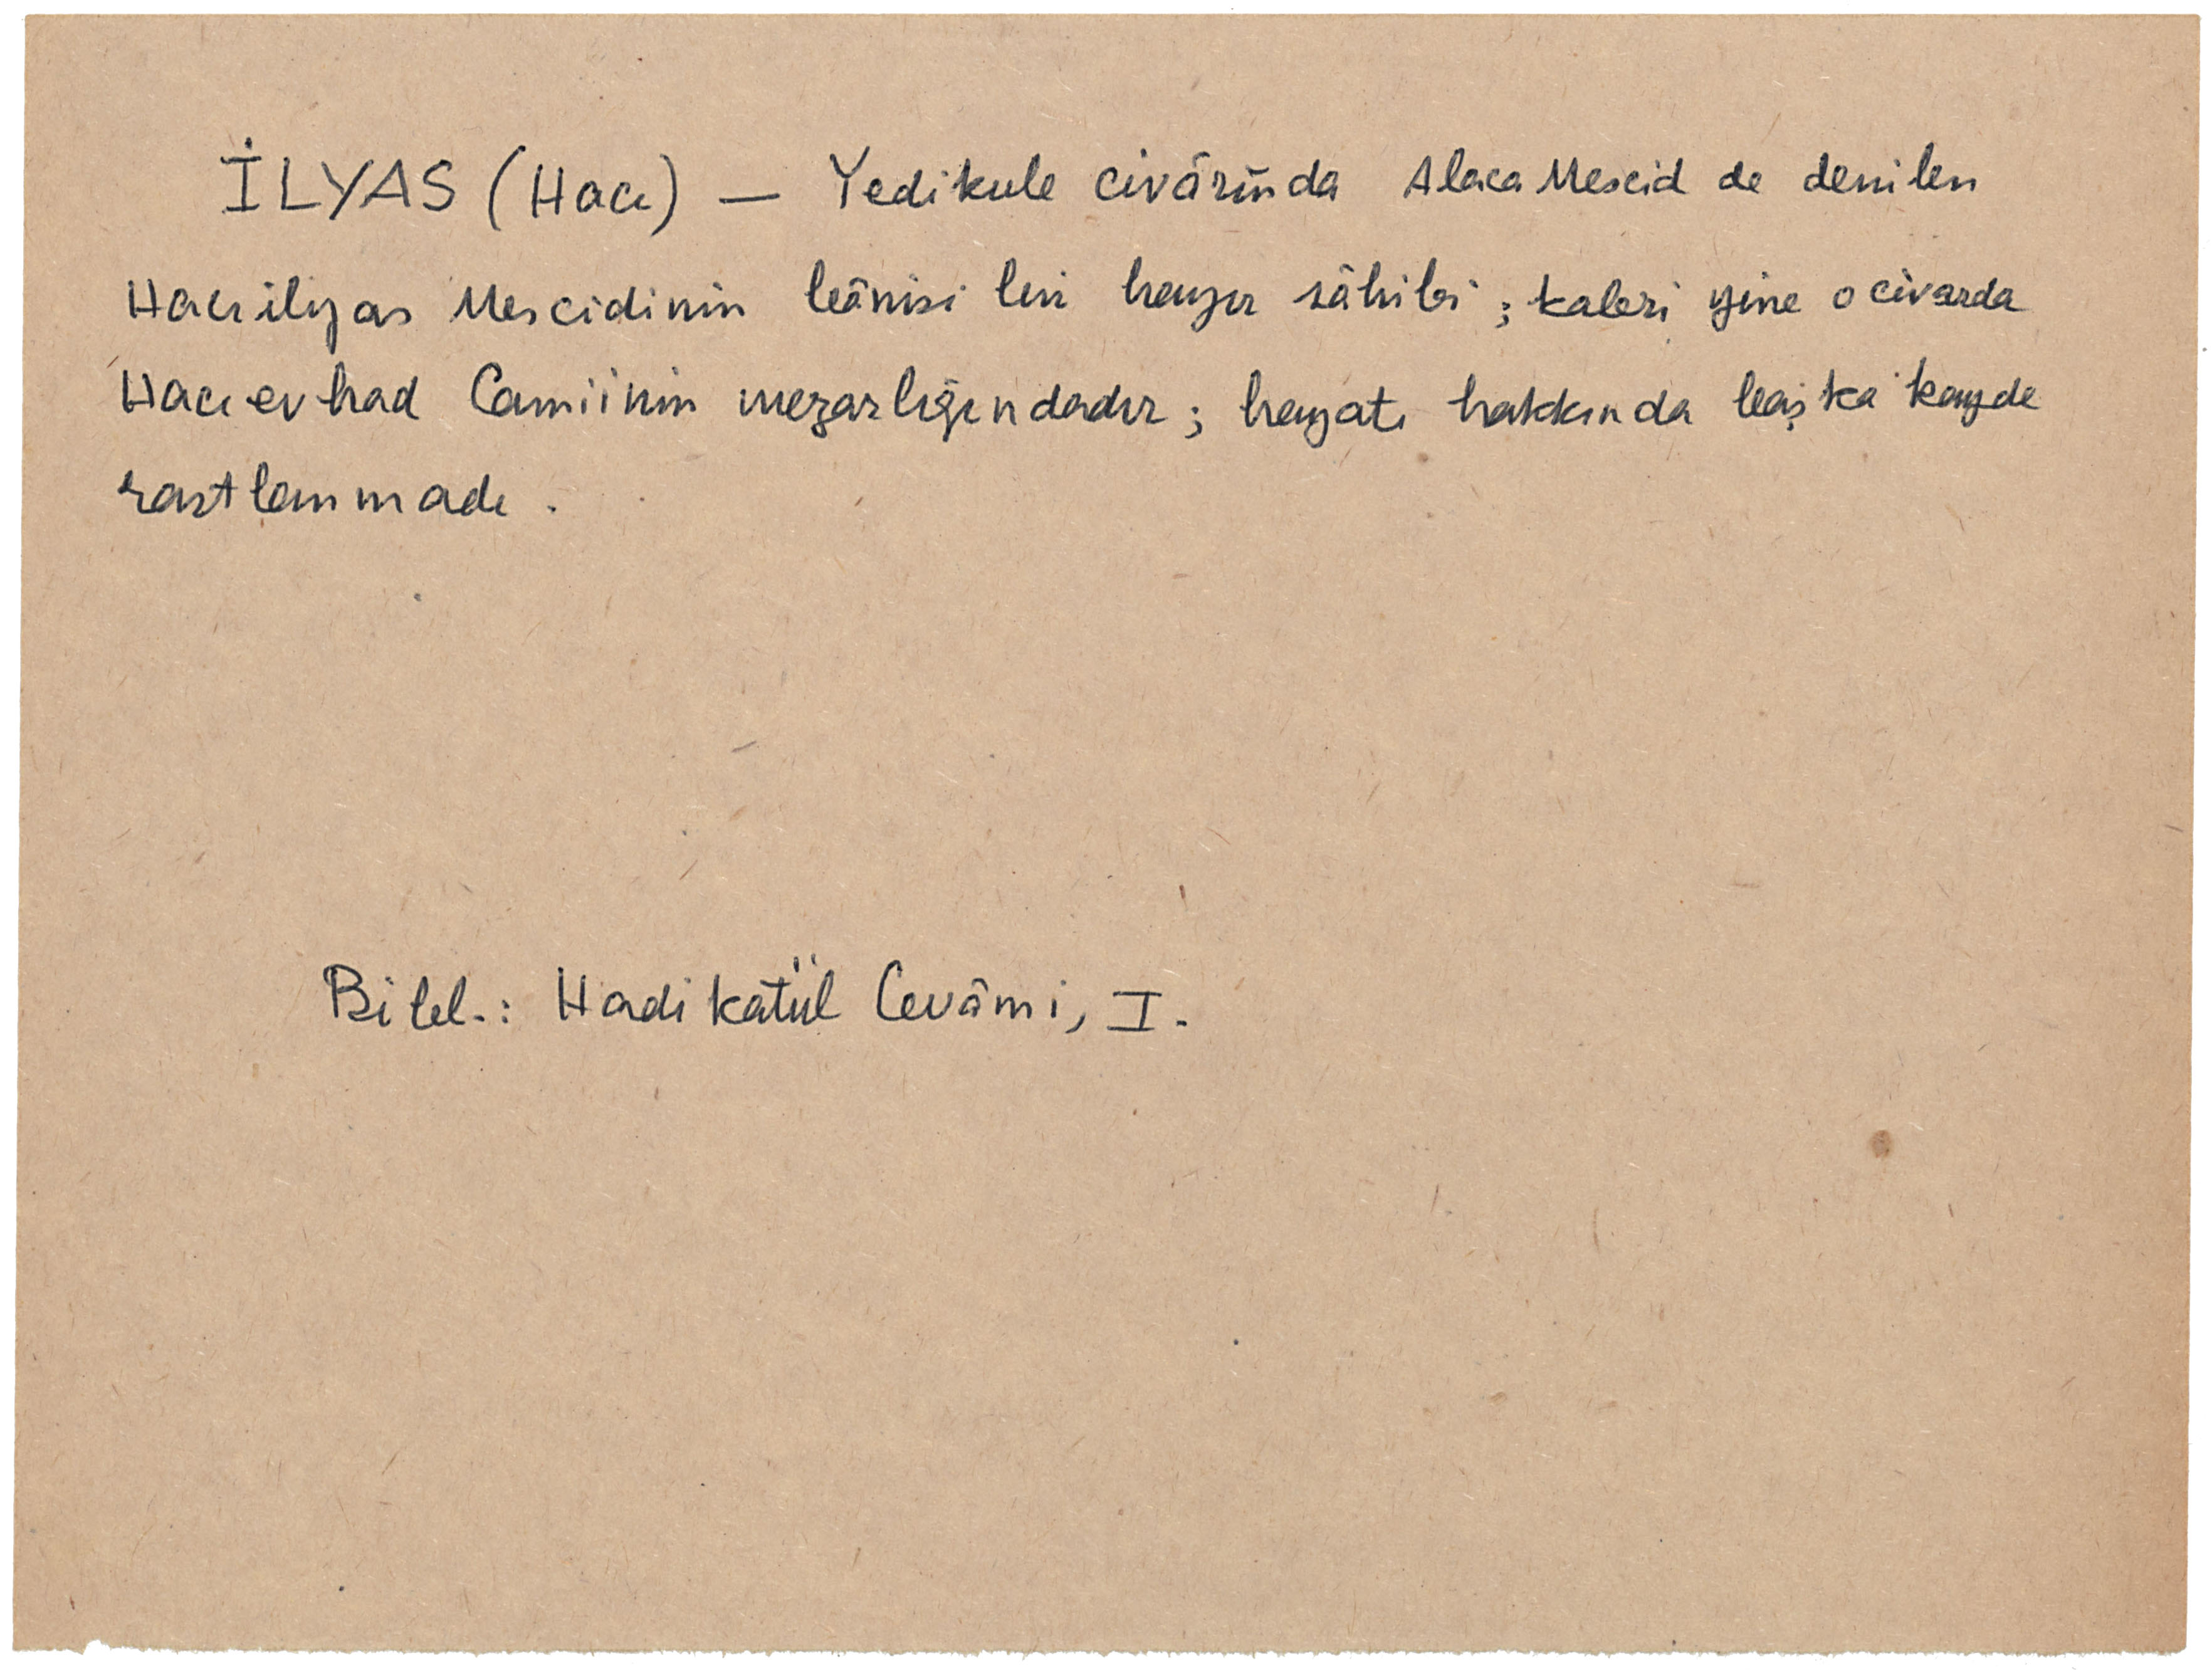 İLYAS (Hacı) — Yedikule civârında Alaca Mescid de denilen
Hacıilyas Mescidinin bânisi bir hayır sâhibi; kabri yine o civarda
Hacıevhad Camiinin mezarlığındadır; hayatı hakkında başka kayde
rastlanmadı.
Bibl.: Hadikatül Cevâmi, I.